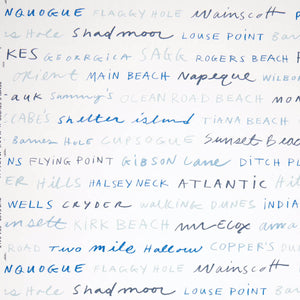 NQUOGUE FLAGGY HOLE Wainscott
is Hole Shadmoor LOUSE POINT Bar
KES GEORGICA SAGG ROGERS BEACH
orient MAIN BEACH Napeque WILBO
auk Sammy's OCEAN ROAD BEACH MON
CABE'S shelter island TIANA BEACH
Barnes Hole CUPSOGUE Sunset Beac
NS FLYING POINT GIBSON Lane DITCH PL
ER Hills HALSEY NECK ATLANTIC Hit
WELLS CRYDER WALKING DUNES INDIA
unsett KIRK BEACH
ROAD TWO mile Hollow COPPER'S
NQUOGUE FLAGGY HOLE Wainscott
is Hole Shadmoor LOUSE POINT Bar